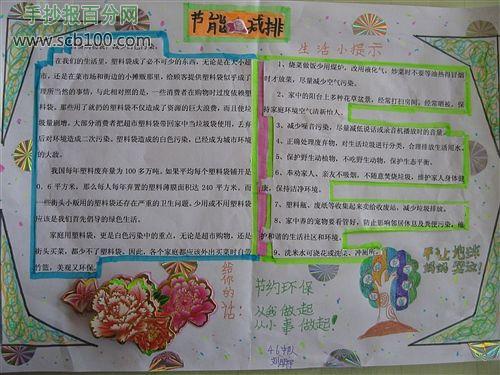 手抄报百分网
www.scb100.com
节能减排
在我们的生活里，塑料袋成了必不可少的东西，无论是在大小超
市，还是在菜市场和街边的小摊贩那里，给顾客提供塑料袋似乎成了
理所当然的事情，与此相对照的是，一些消费者在购物时过度依赖塑
料袋，那些用了就扔的塑料袋不仅造成了资源的巨大浪费，而且使垃
圾量剧增。大部分消费者把超市塑料袋带回家中当垃圾袋使用，丢弃
后对环境造成二次污染。塑料袋造成的白色污染，已经成为城市环境
的大敌。
我国每年塑料废弃量为 100 多万吨。如果平均每个塑料袋铺开是
0.6 平方米，那么每人每年弃置的塑料薄膜面积达 240 平方米。而
一些街头小贩用的塑料袋还存在严重的卫生问题，少用或不用塑料袋
应该是我们首先倡导的绿色生活。
家庭用塑料袋，更是白色污染中的重点，无论是超市购物，还是
街头买菜，都少不了塑料袋。因此，各个家庭都应该外出买菜时自带
竹篮，美观又环保。
生活小提示
1、烧菜做饭少用煤炉，改用液化气，炒菜时不要等油热得冒烟
时才放菜，尽量减少空气污染。
2、家中的阳台上多种花草盆景，经常打扫房间，经常晒被，保
持家庭环境空气清新怡人。
3、减少噪音污染，尽量减低说话或录音机播放时的音量。
4、正确处理废弃物，对生活垃圾进行分类，合理排放生活用水。
5、保护野生动植物，不吃野生动物，保护生态平衡。
6、奉劝家人、亲友不吸烟，不随意焚烧垃圾，维护家人身体健
康，保持洁净环境。
7、塑料瓶、废纸等收集起来卖给收废站，减少垃圾排放。
8、家中养的宠物要看管好，防止影响邻居休息及粪便污染，维
护和谐的生活社区和环境。
9、洗米水可浇花或洗菜、冲厕所。
给你的话：
节约环保
从我做起
从小事做起！
46中队